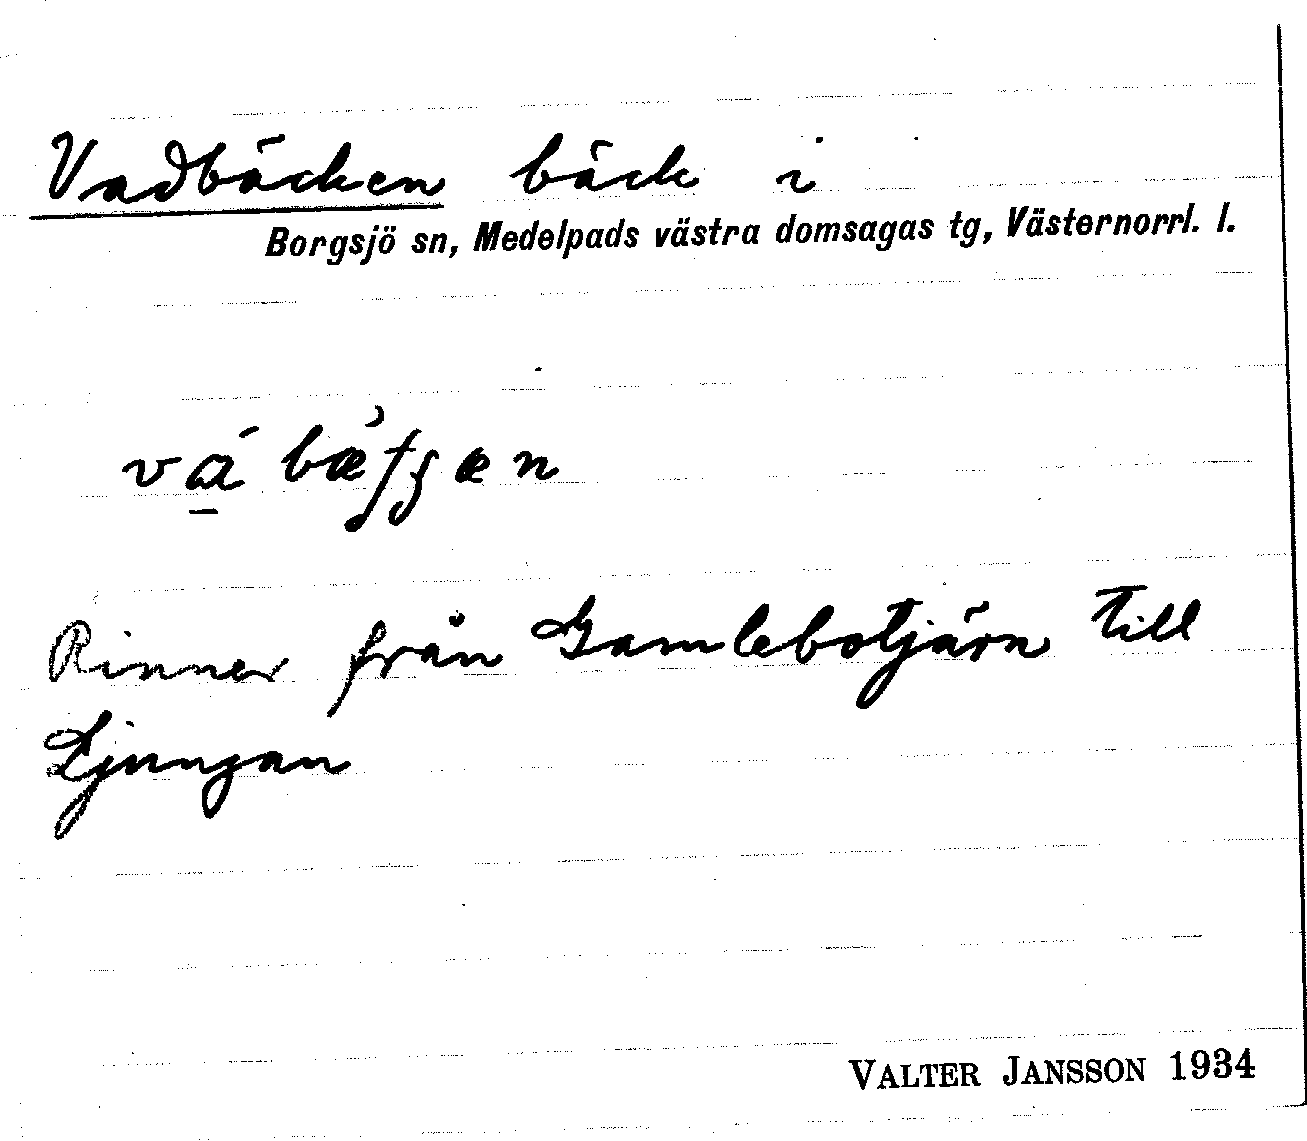 Vadbäcken bäck i
Borgsjö sn, Medelpads västra domsagas tg, Västernorrl. l.
Rinner från Gamlebotjärn till
Ljungan
VALTER JANSSON 1934